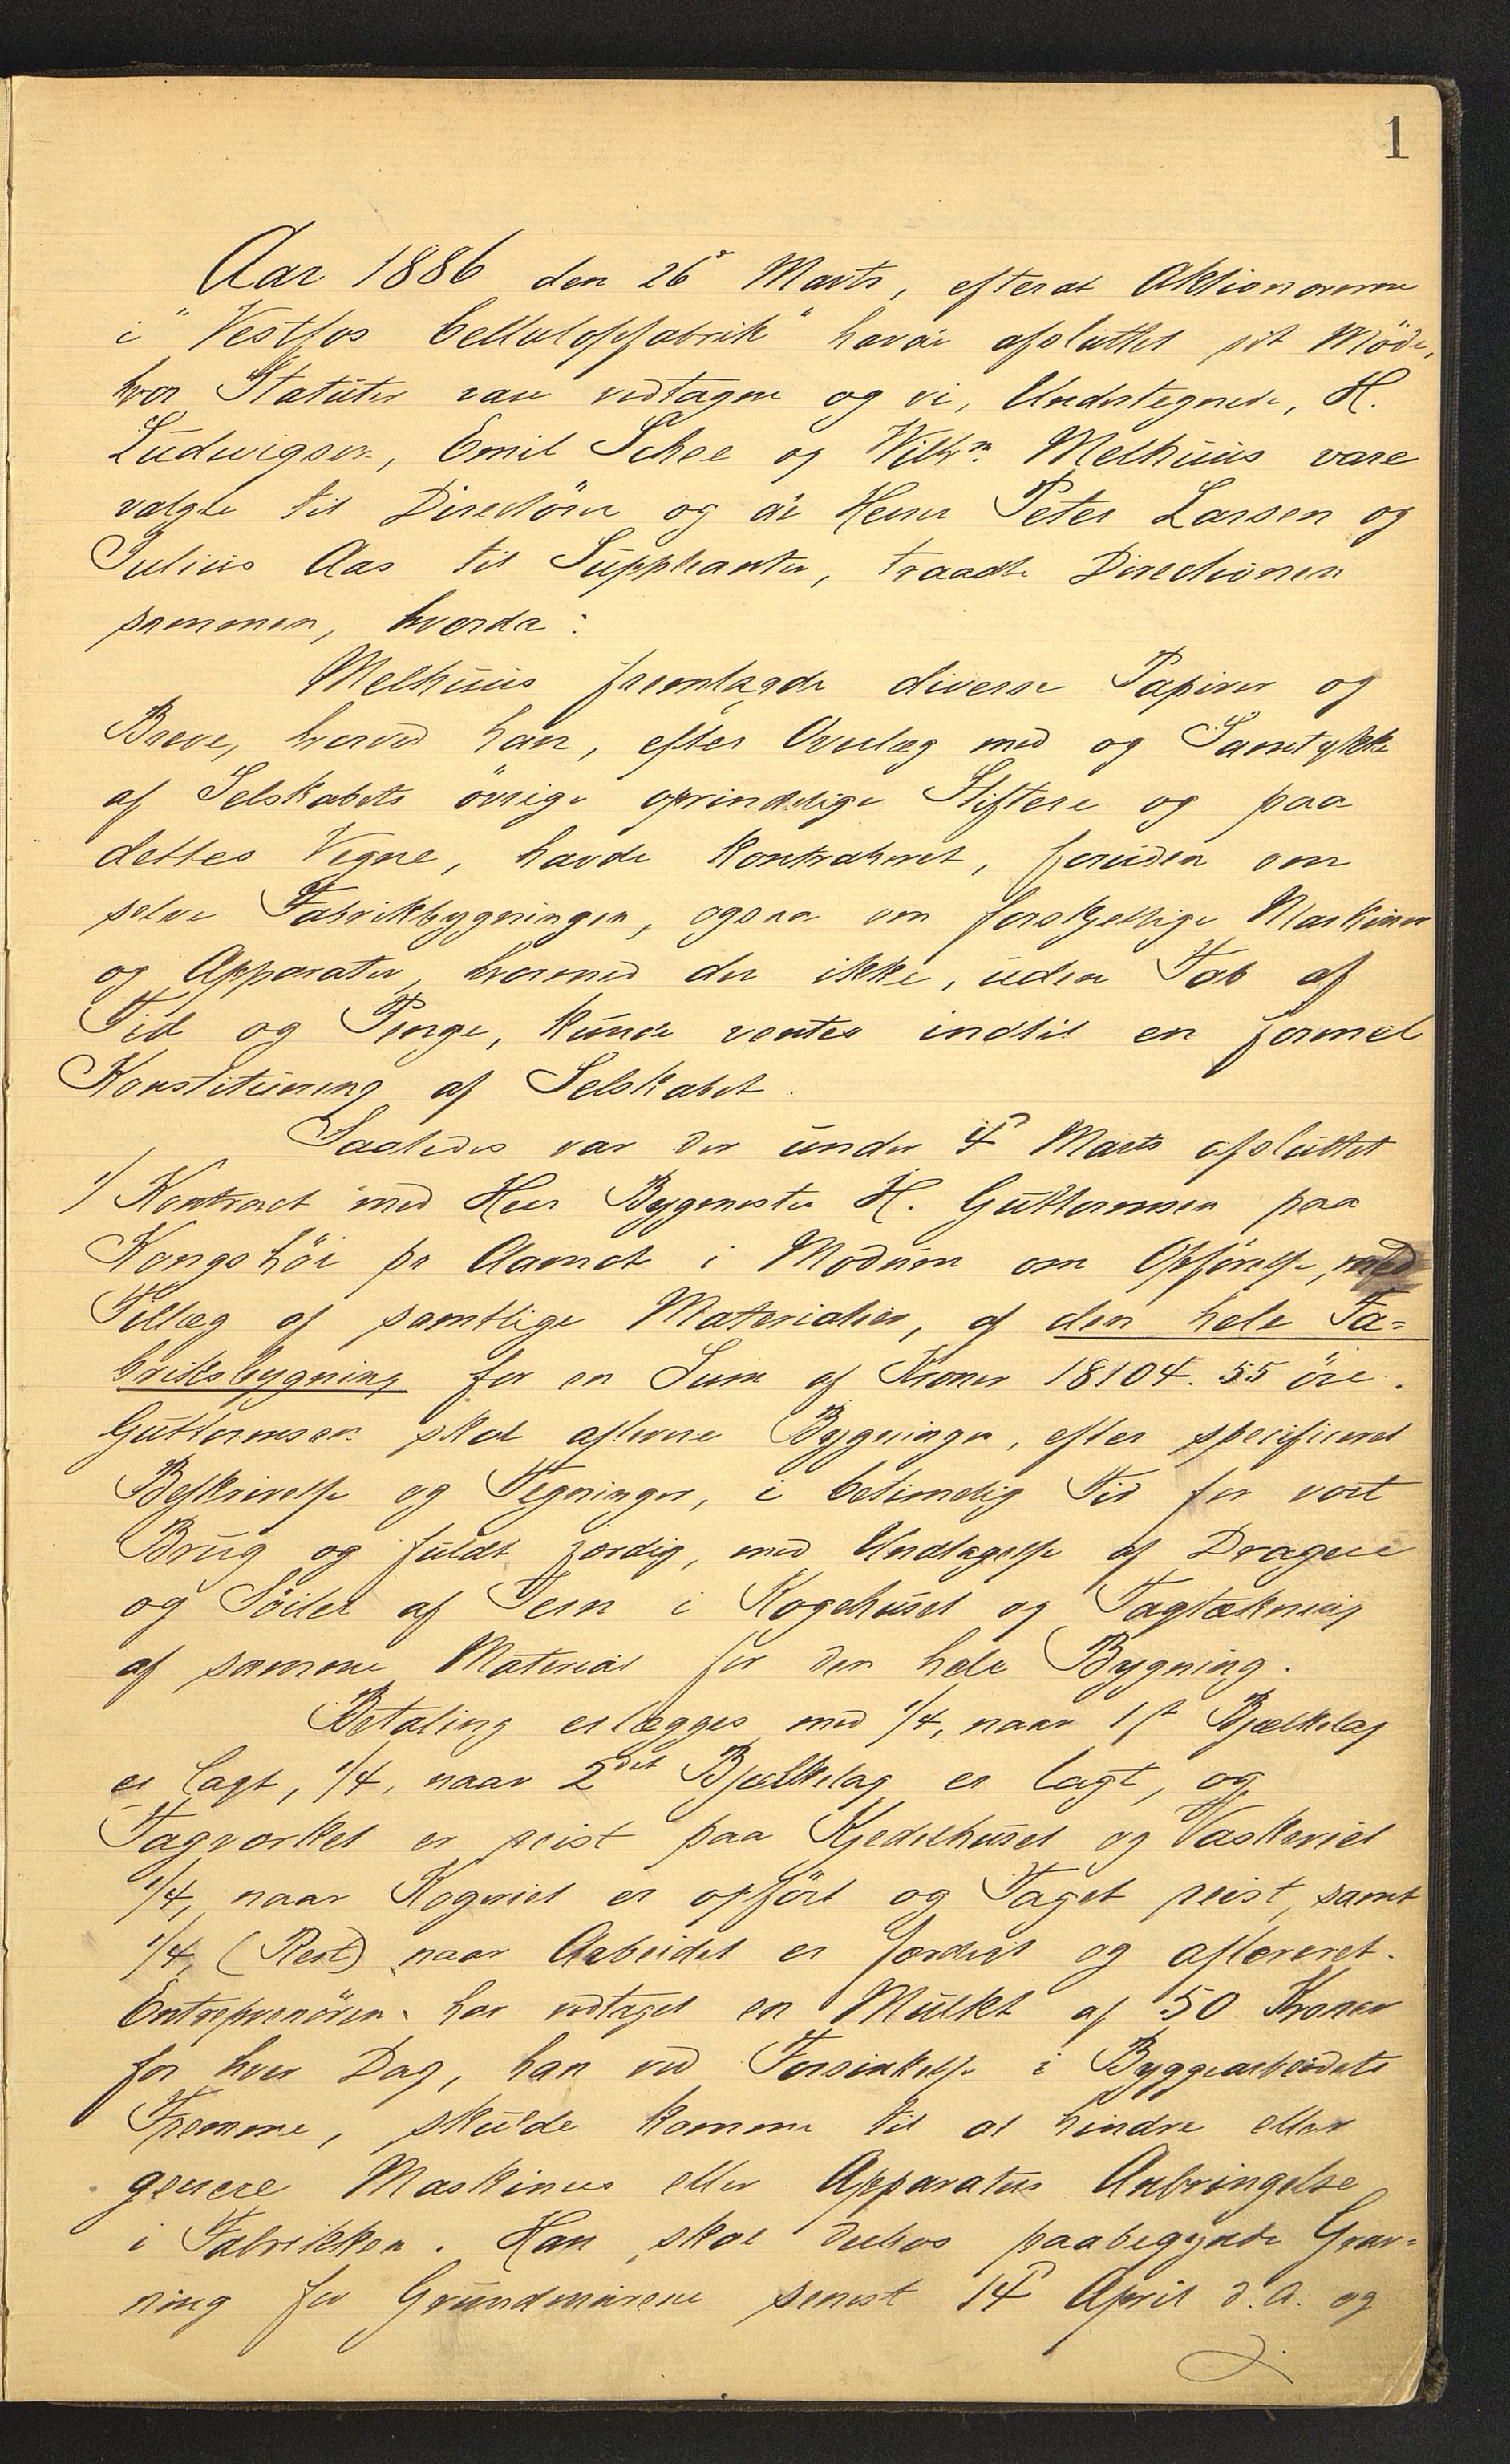 1
Aar 1886 den 26de Marts, efterat Aktionærerne
i "Vestfos Cellulosefabrik" havde afsluttet sit Möde,
hvor Statuter vare vedtagne og vi, Undertegnede, H.
Ludwigsen, Emil Schee og Wilhm. Melhuus vare
valgte til Directörer og de Herrer Peter Larsen og
Julius Aas til Suppleanter, traadte Directionen
sammen, hvorda:
Melhuus fremlagde diverse Papirer og
Breve, hvorved han, efter Overlæg med og Samtykke
af Selskabets övrige oprindelige Stiftere og paa
dettes Vegne, havde kontraheret, foruden om
selve Fabrikbygningen, ogsaa om forskjellige Maskiner
og Apparater, hvormed der ikke, uden Tab af
Tid og Penge, kunde ventes indtil en formel
Konstituering af Selskabet.
Saaledes var der under 4de Marts afsluttet
1/ Kontract med Herr Bygmester H. Guttormsen paa
Kongshöi pr Aamot i Modum om Opförelse, med
Tillæg af samtlige Materialier, af den hele Fa=
briksbygning for en Sum af Kroner 18104.55 öre.
Guttormsen skal aflevere Bygningen, efter specificeret
Beskrivelse og Tegninger, i betimelig Tid for vort
Brug og fuldt færdig, med Undtagelse af Dragere
og Söiler af Jern i Kogehuset og Tagtækning
af samme Material for den hele Bygning.
Betaling erlægges med 1/4, naar 1ste Bjælkelag
er lagt, 1/4, naar 2det Bjælkelag er lagt, og
Tagverket er reist paa Kjedelhuset og Vaskeriet
1/4, naar Kogeriet er opfört og Taget reist, samt
1/4, (Rest) naar Arbeidet er færdigt og afleveret.
Entreprenören har vedtaget en Mulkt af 50 Kroner
for hver Dag, han ved Forsinkelse i Byggearbeidets
Fremme, skulde komme til at hindre eller
genere Maskiners eller Apparaters Anbringelse
i Fabrikken. Han skal derhos paabegynde Grav=
ning for Grundmurene senest 14de April d.A. og